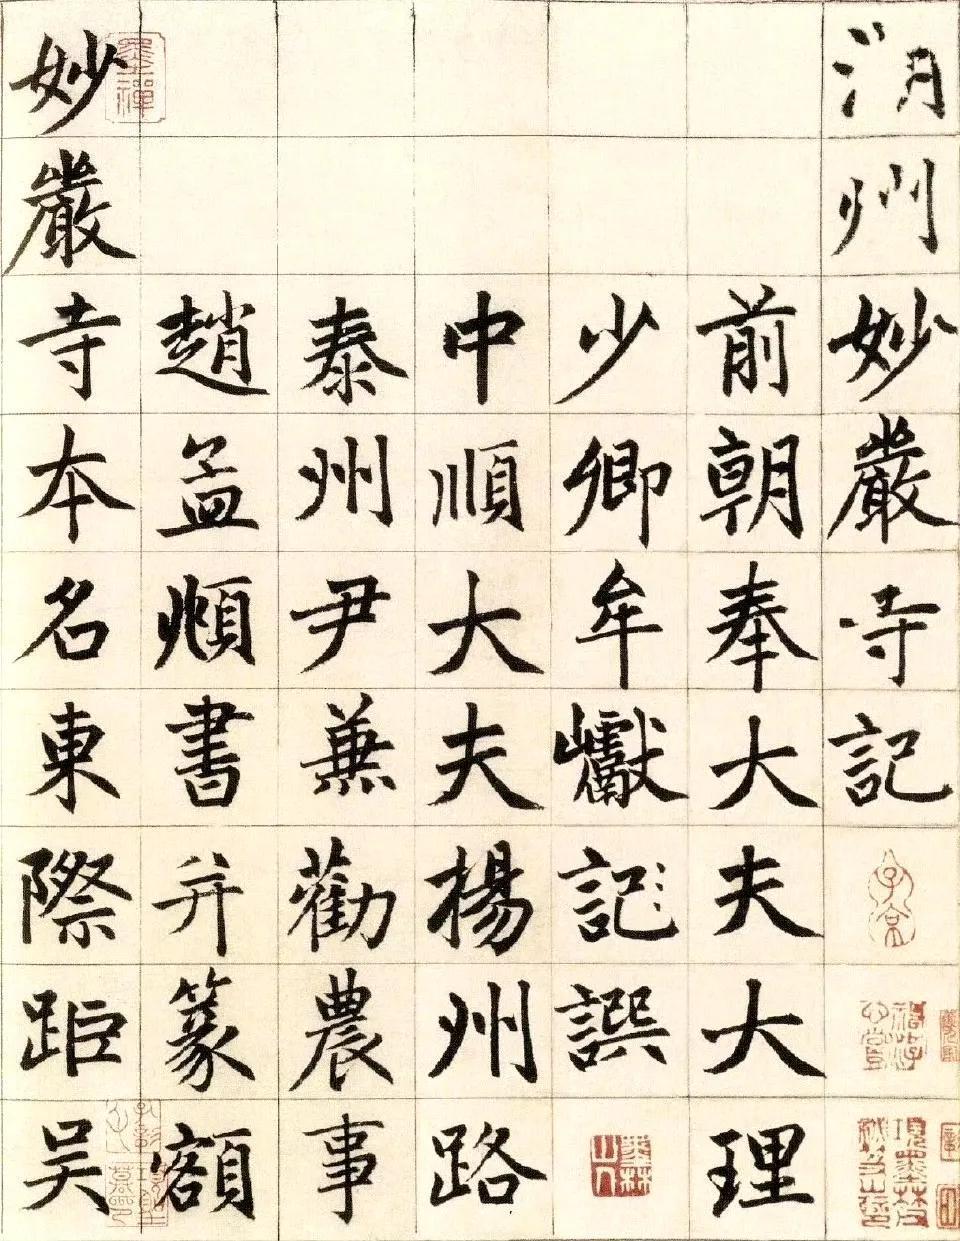 湖州妙嚴寺記
前朝奉大夫大理
少卿牟巘記譔
中順大夫楊州路
泰州尹兼勸農事
趙孟頫書并篆額
妙嚴寺本名東際距吴